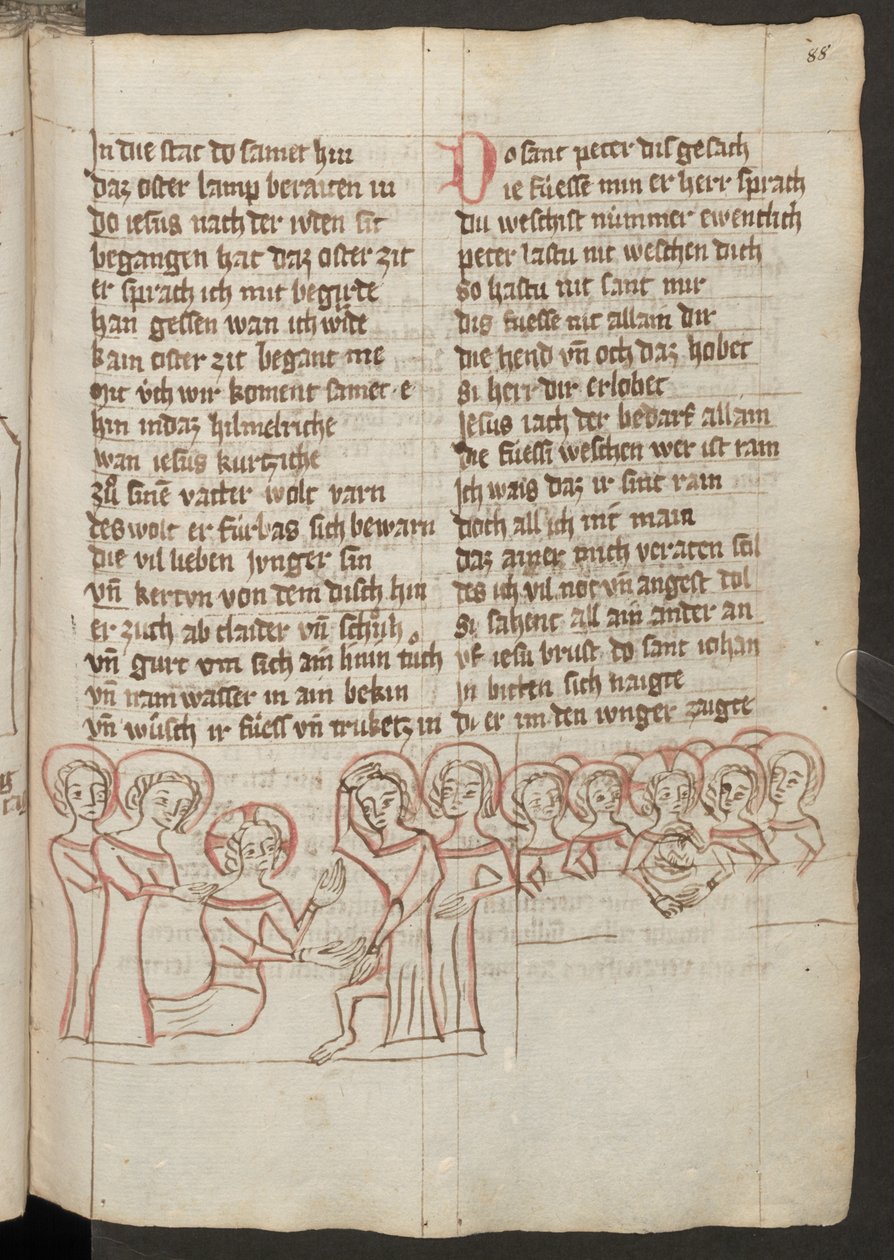 88
In die stat do samet hin
Daz oster lamp beraiten in
Do iesus nach der iuden sit
begangen hat daz oster zit
er sprach ich mit begirde
han gessen wan ich wirde
kain oster zit begant me
Mit v́ch wir koment samet e
hin in daz himelriche
wan iesus kurtzliche
zů sinē vatter wolt varn
des wolt er fúrbas sich bewarn
die vil lieben Junger sin
vn̄ kertvn von dem disch hin
er zuch ab claider vn̄ schůh
vn̄ gurt vm sich ain linin tuch
vn̄ nam wasser in ain bekin
vn̄ wůsch ir fuess vn̄ truketz in
Do sant peter dis gesach
Die fuesse min er herr sprach
du weschist nummer ewenclich
peter lastu nit weschen dich
so hastu nit sant mir
dis fuesse nit allain dir
die hend vn̄ och daz hobet
si herr dir erlobet
Jesus iach der bedarf allain
die fuessi weschen wer ist rain
Ich wais daz ir sint rain
doch all ich nit main
daz ainer mich veraten sol
des ich vil not vn̄ angest dol
Si sahent all ain ander an
vf iesu brust do sant iohan
In bitten sich naigte
di er im den iunger zaigte